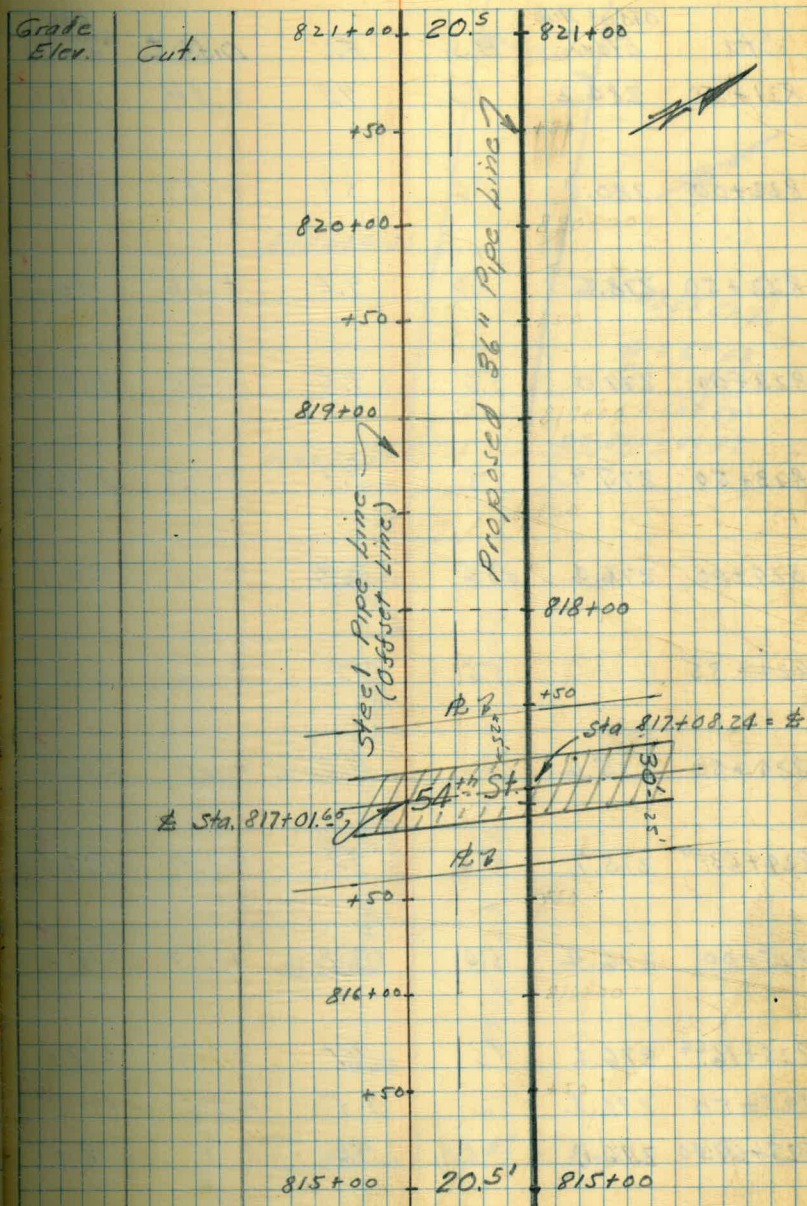 Grade
Elev.
Cut.
821+00
20.5
821+00
+50
820+00
+50
819+00
Steel Pipe Line
(Offset Line)
Proposed 36" Pipe Line
818+00
+50
PL
25'
Sta 817+08.24 = ℄
54th St.
30'
25'
℄ Sta. 817+01.60
PL
+50
816+00
+50
815+00
20.5'
815+00